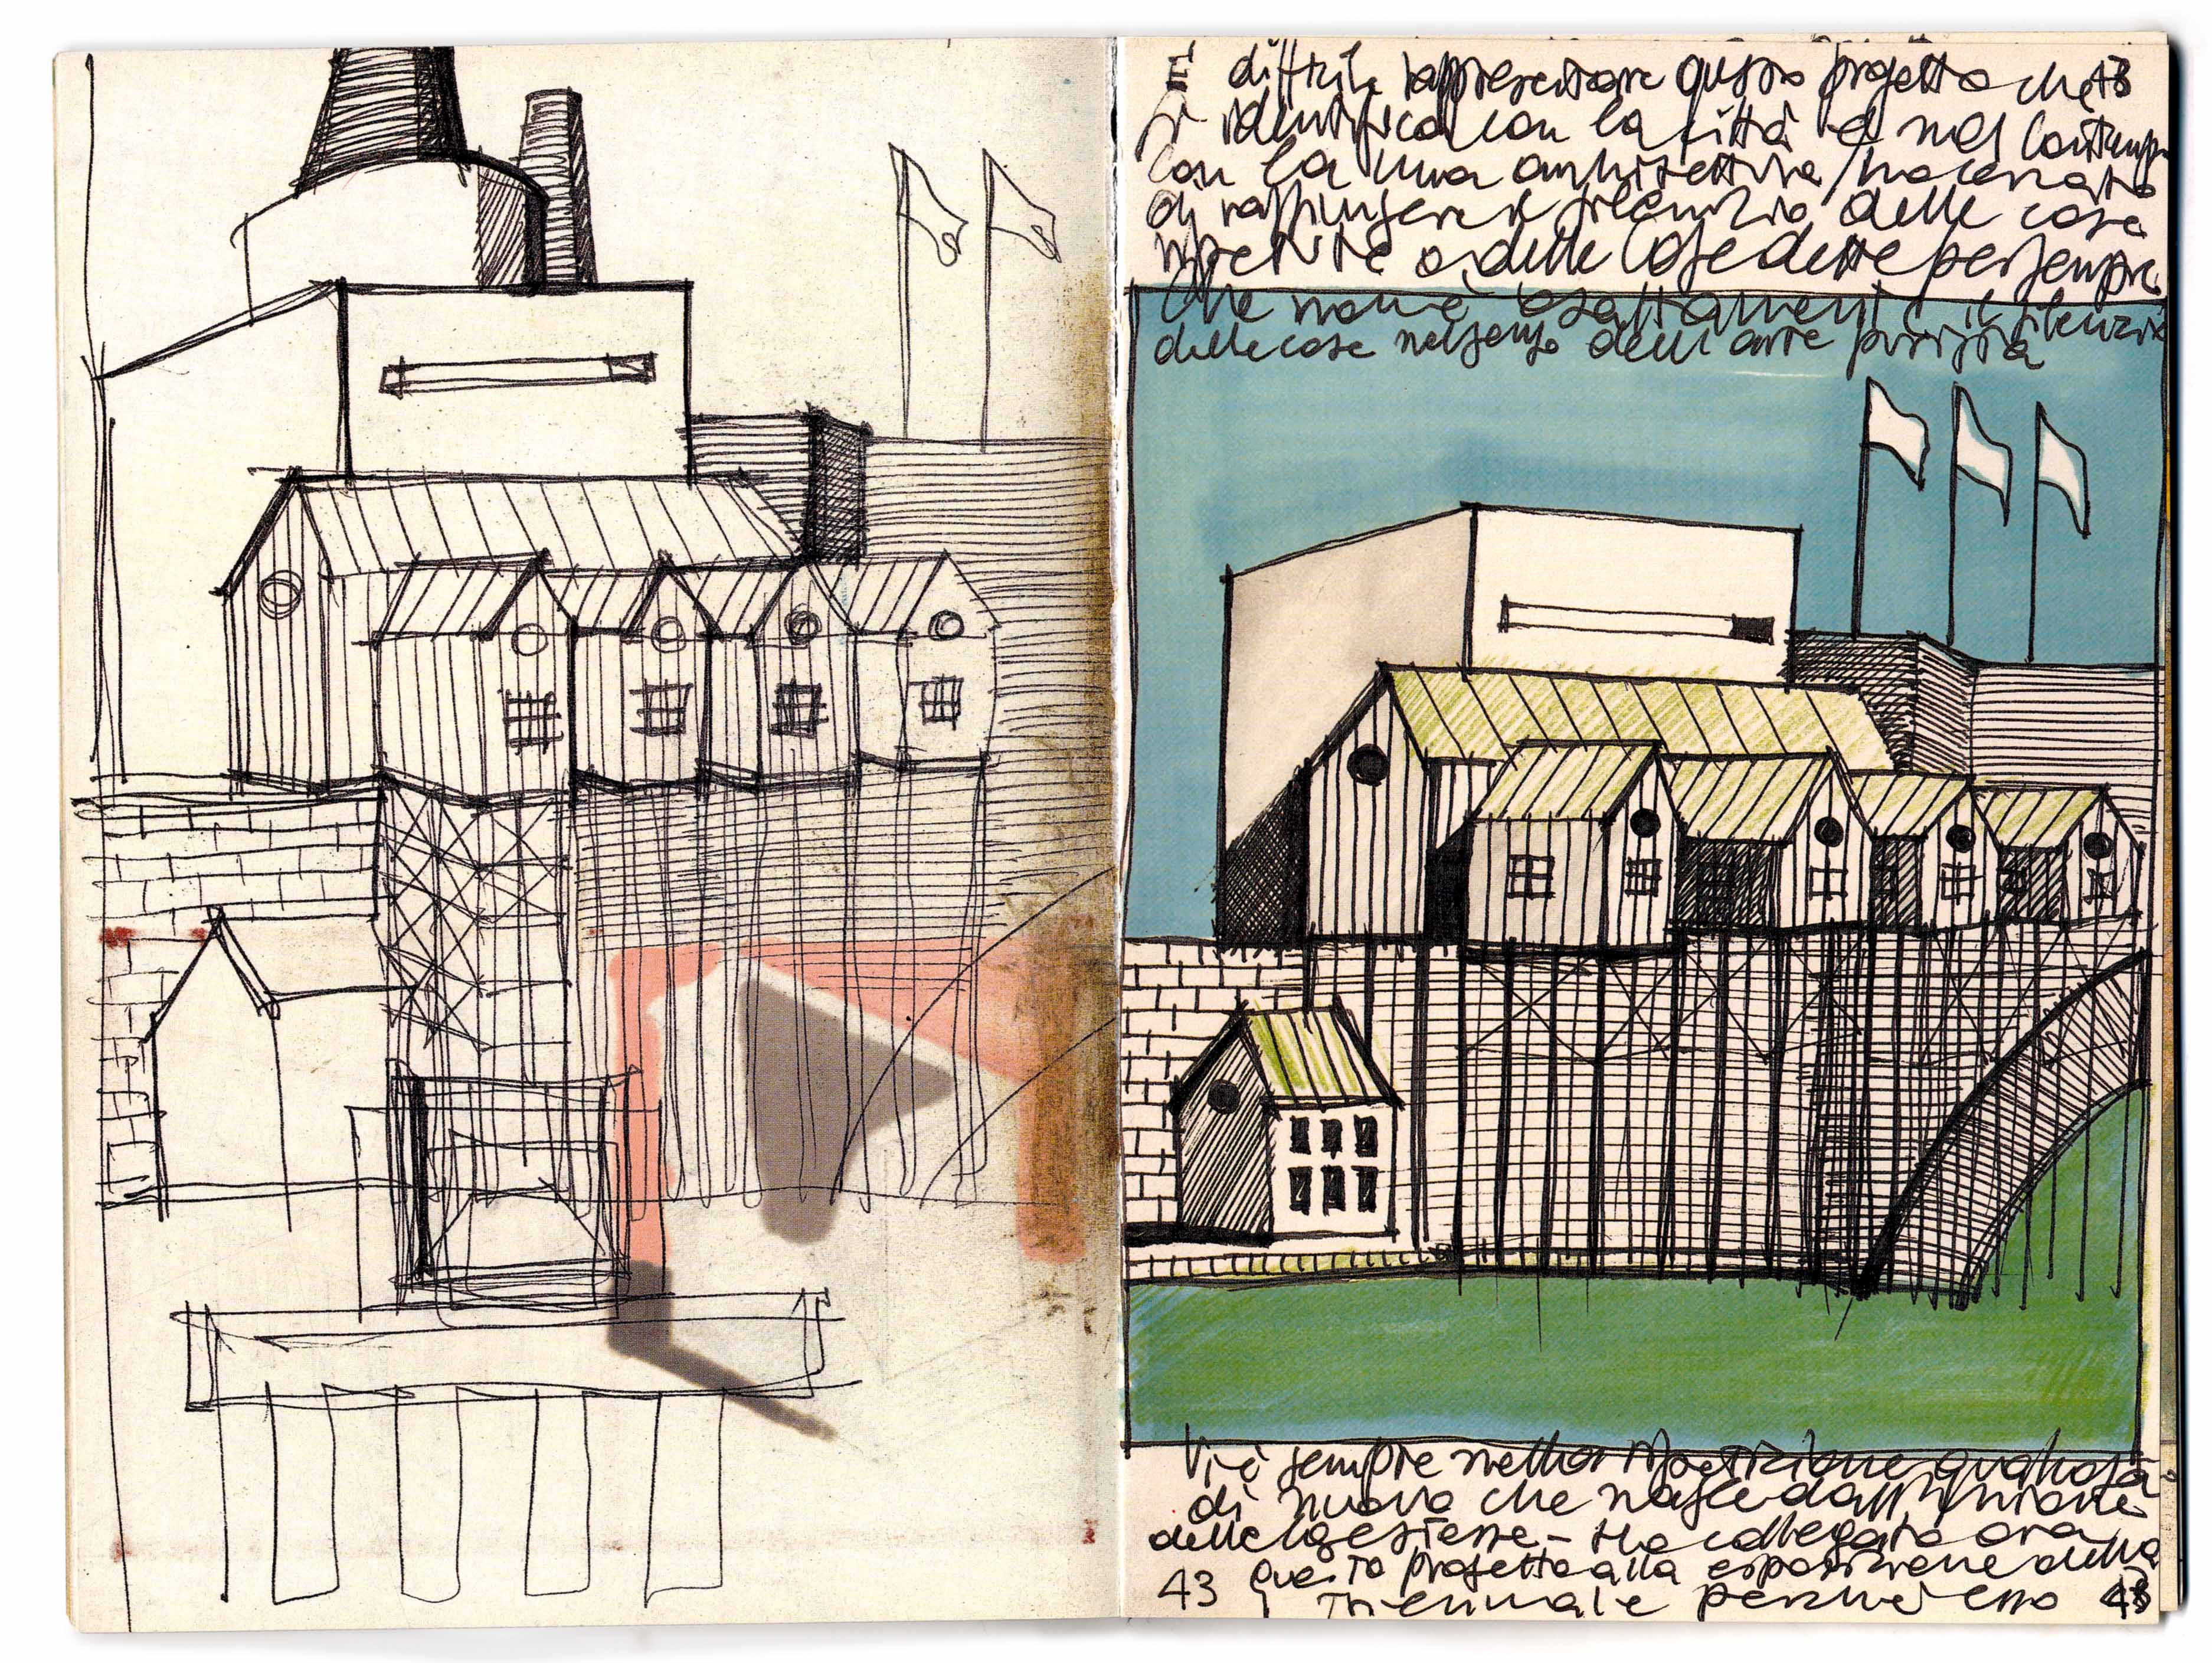 È difficile rappresentare questo progetto che 43
si identifica con la città e nel contempo
con la mia architettura / ho cercato
di raggiungere il silenzio delle cose
ripetute o delle cose dette per sempre
che non è esattamente il silenzio
delle cose nel senso dell'arte purista
Vi è sempre nella ripetizione qualcosa
di nuovo che nasce
delle stesse - Ho collegato ora
questo progetto alla esposizione della
43 Triennale perché esso 43